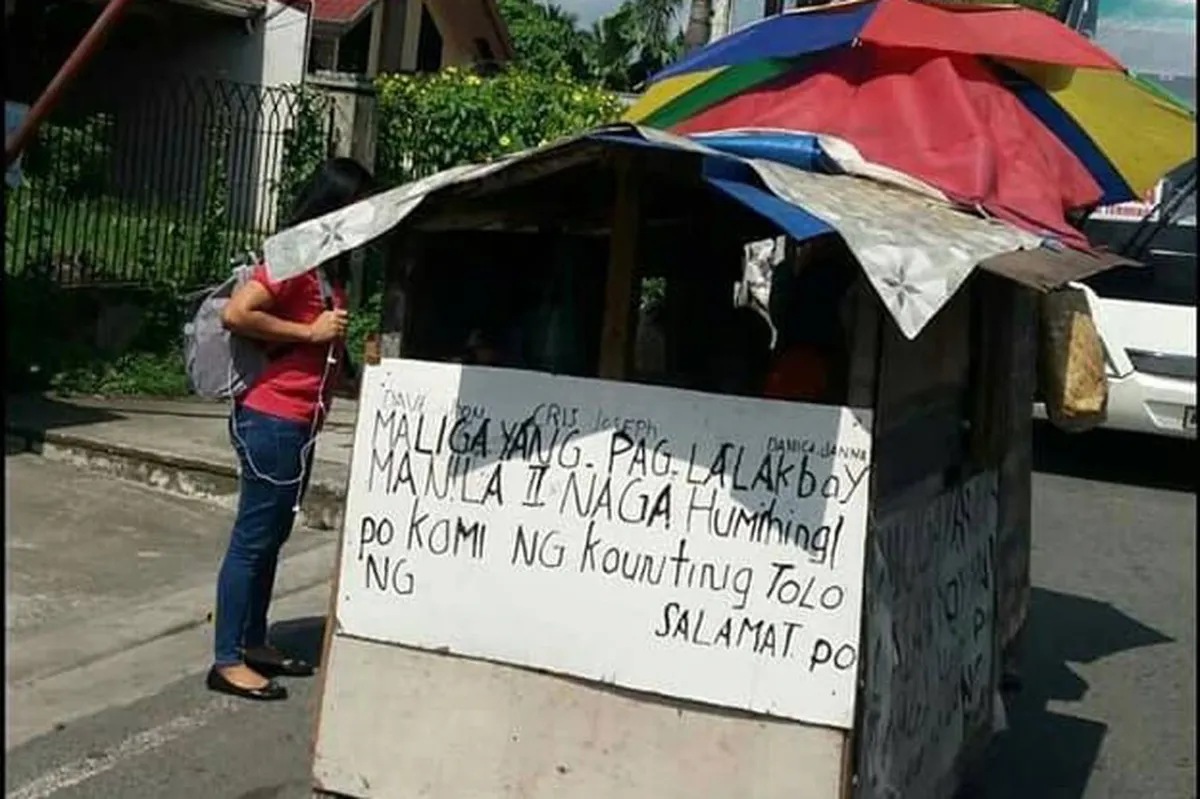 CRIS JOSEPH DANICA JANNA
MALIGAYANG. PAG. LALAKbay
MANILA II NAGA HumihingI
po KAMI NG kounting TOLO
NG
SALAMAT po